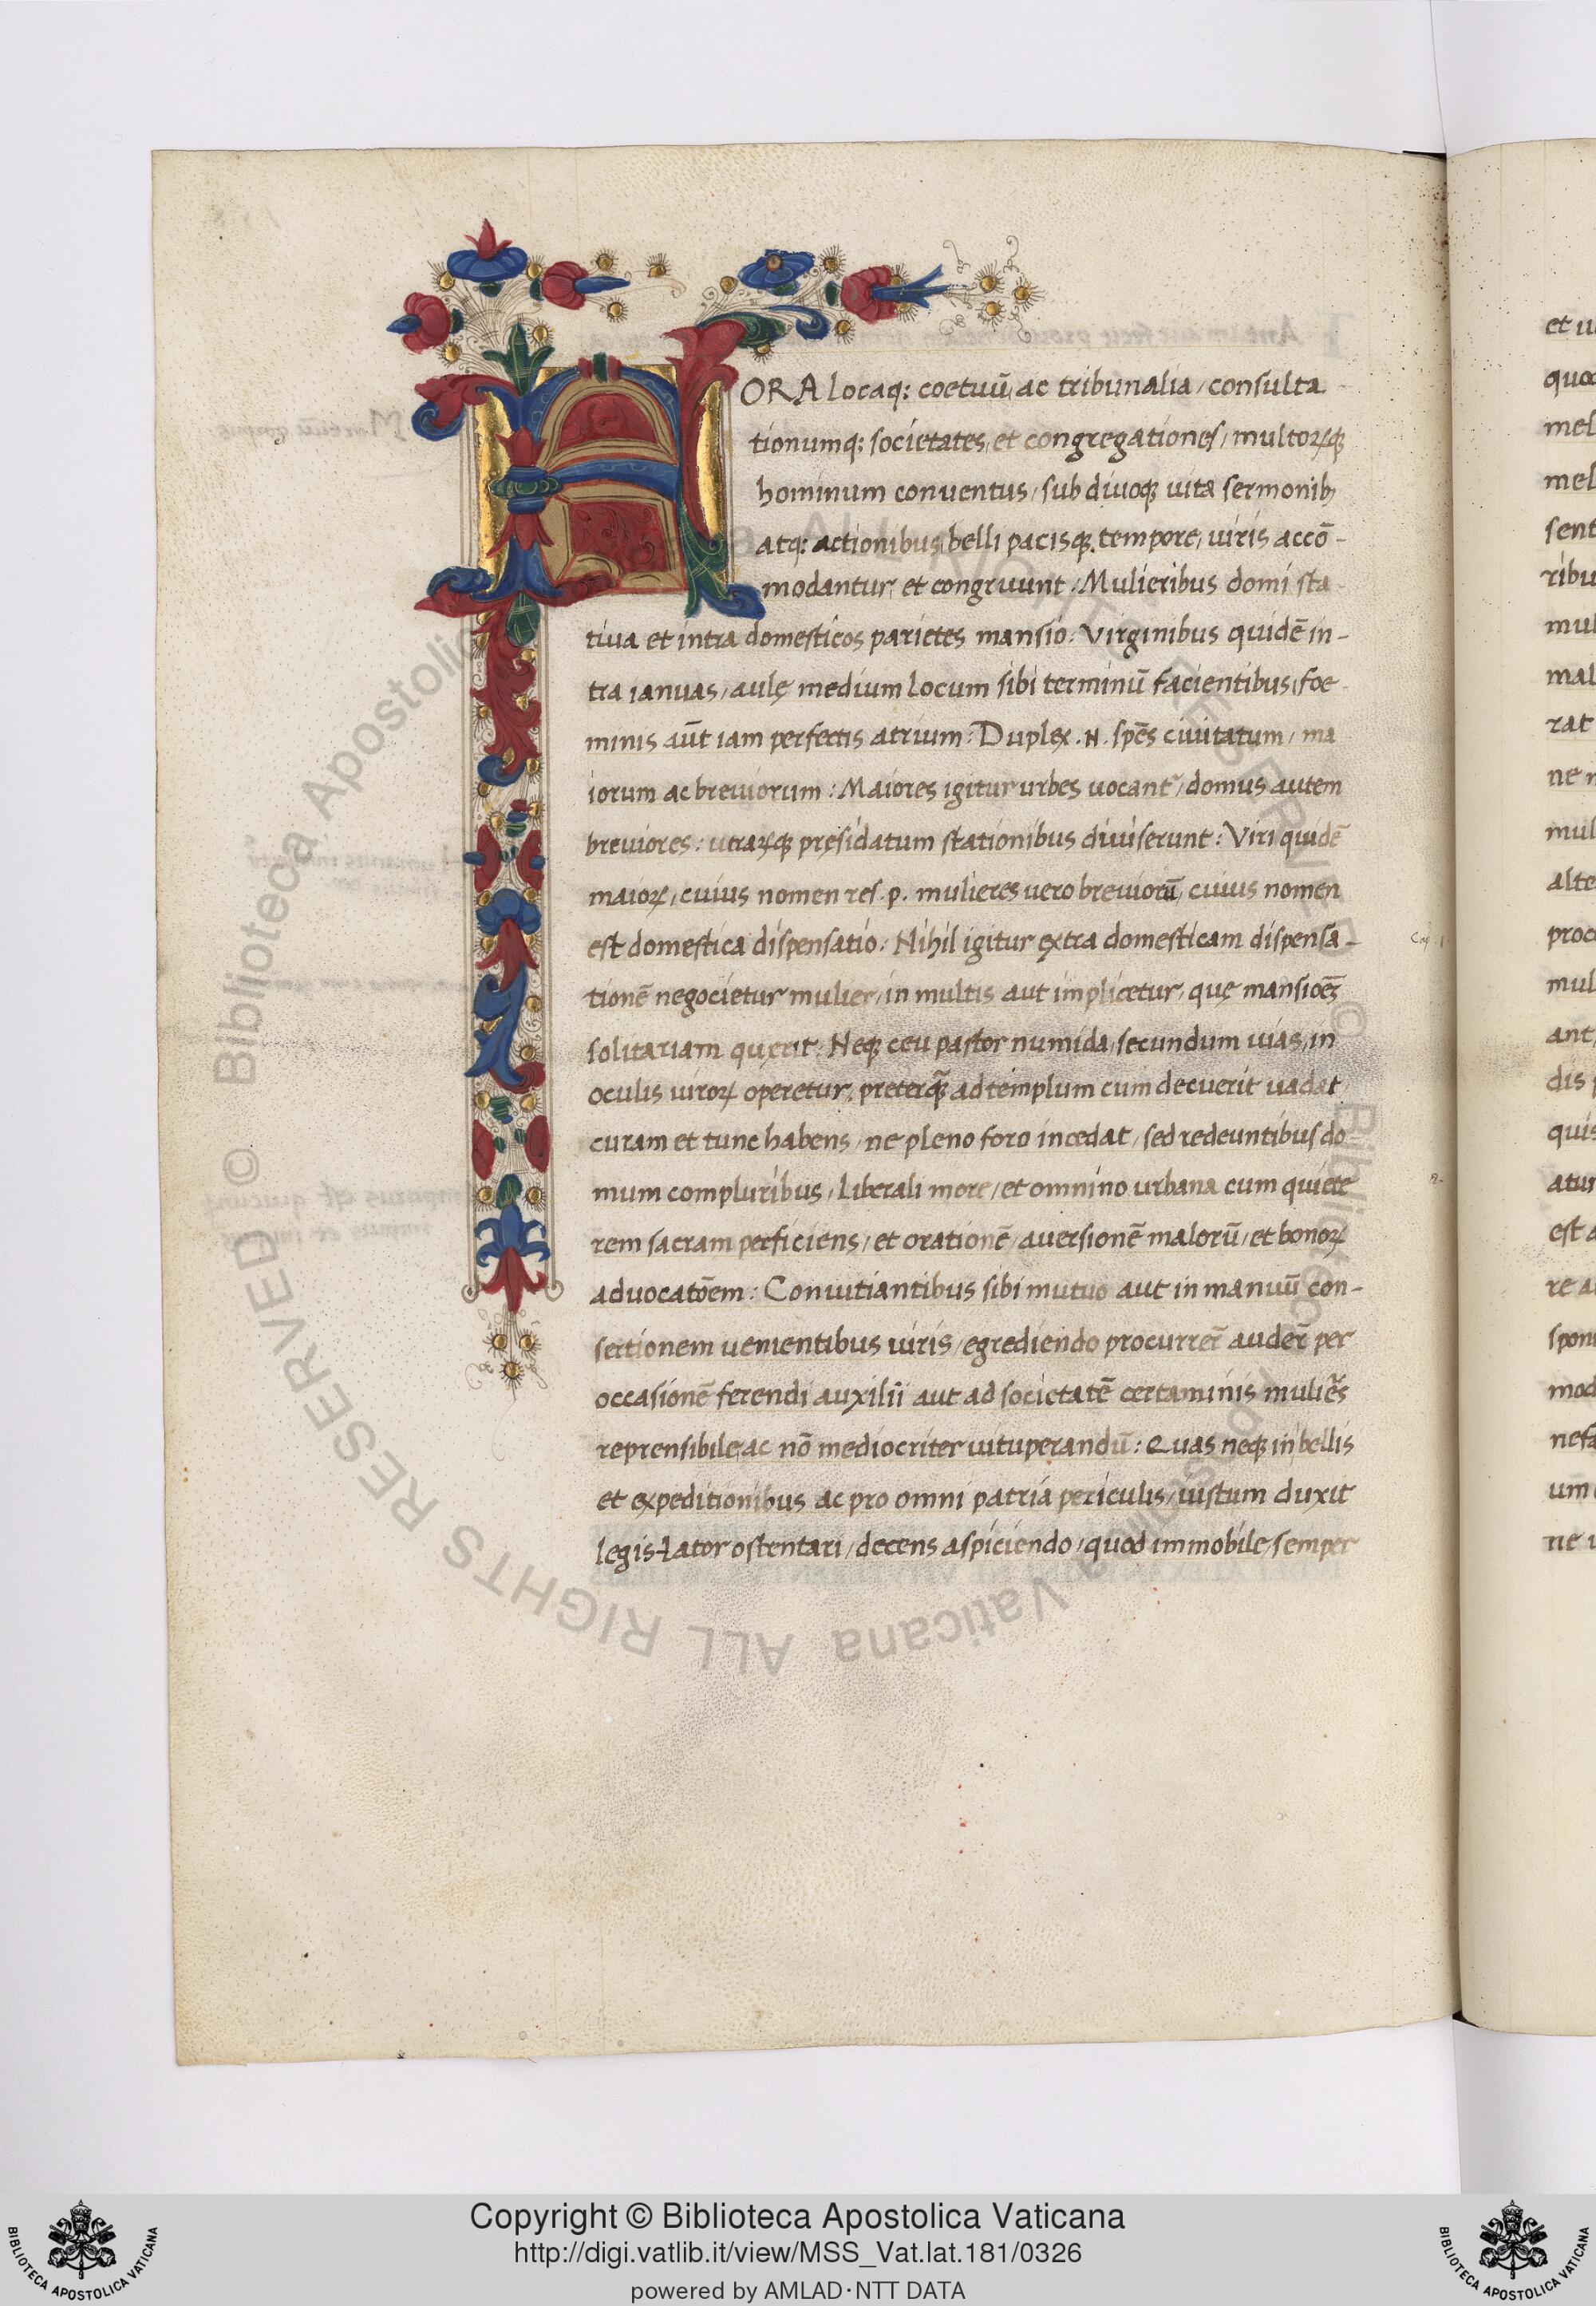 FORA locaq: coetuū, ac tribunalia, consulta
tionumq: societates, et congregationes, multoꝝq;
hominum conventus, sub divoq; vita sermonib;
atq: actionibus belli pacisq; tempore, viris accō-
modantur, et congruunt. Mulieribus domi sta
tiva et intra domesticos parietes mansio. Virginibus quidē in-
tra ianuas, aulę medium locum sibi terminū facientibus, foe
minis aūt iam perfectis atrium: Duplex .N. spēs civitatum, ma
iorum ac breviorum: Maiores igitur urbes vocant͛, domus autem
breviores: utraꝝq; pręsidatum stationibus diviserunt: Viri quidē
maioꝝ, cuius nomen res .p. mulieres vero breviorū, cuius nomen
est domestica dispensatio. Nihil igitur extra domesticam dispensa-
tionē negocietur mulier, in multis aut implicetur, quę mansioēs
solitariam quęrit. Neq; ceu pastor numida, secundum vias, in
oculis viroꝝ operetur, preterq̄ ad templum cum decuerit vadat
curam et tunc habens, ne pleno foro incedat, sed redeuntibus do
mum compluribus, liberali more, et omnino urbana cum quiete
rem sacram perficiens, et orationē, aversionē malorū, et bonoꝝ
advocatōem: Convitiantibus sibi mutuo aut in manuū con-
sertionem venientibus viris, egrediendo procurrer̄ auder̄ per
occasionē ferendi auxilii aut ad societatē certaminis muliēs
reprensibile, ac nō mediocriter vituperandū: Quas neq; in bellis
et expeditionibus ac pro omni patria periculis, iustum duxit
legislator ostentari, decens aspiciendo, quod immobile, semper
et u
quo
mel
mel
sent
ribu
mul
mal
rat
ne
mul
alte
proc
mul
ant,
dis
quis
atur
est
re a
spon
mod
nefa
um
ne
© Biblioteca Apostolica Vaticana ALL RIGHTS RESERVED
Copyright © Biblioteca Apostolica Vaticana
http://digi.vatlib.it/view/MSS_Vat.lat.181/0326
powered by AMLAD·NTT DATA
BIBLIOTECA APOSTOLICA VATICANA
BIBLIOTECA APOSTOLICA VATICANA